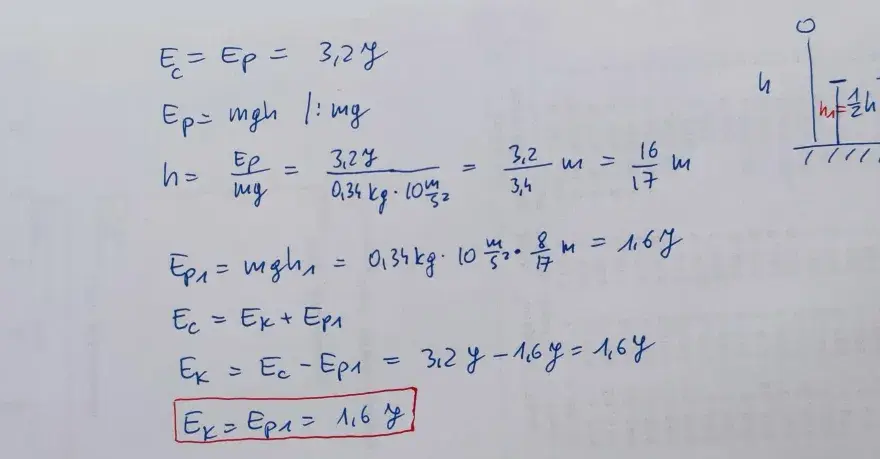 E_c = E_p = 3,2 J
E_p = mgh /: mg
h = E_p/mg = 3,2 J / 0,34 kg · 10 m/s² = 3,2/3,4 m = 16/17 m
E_p1 = mgh_1 = 0,34 kg · 10 m/s² · 8/17 m = 1,6 J
E_c = E_k + E_p1
E_k = E_c - E_p1 = 3,2 J - 1,6 J = 1,6 J
E_k = E_p1 = 1,6 J
h
h_1 = 1/2 h